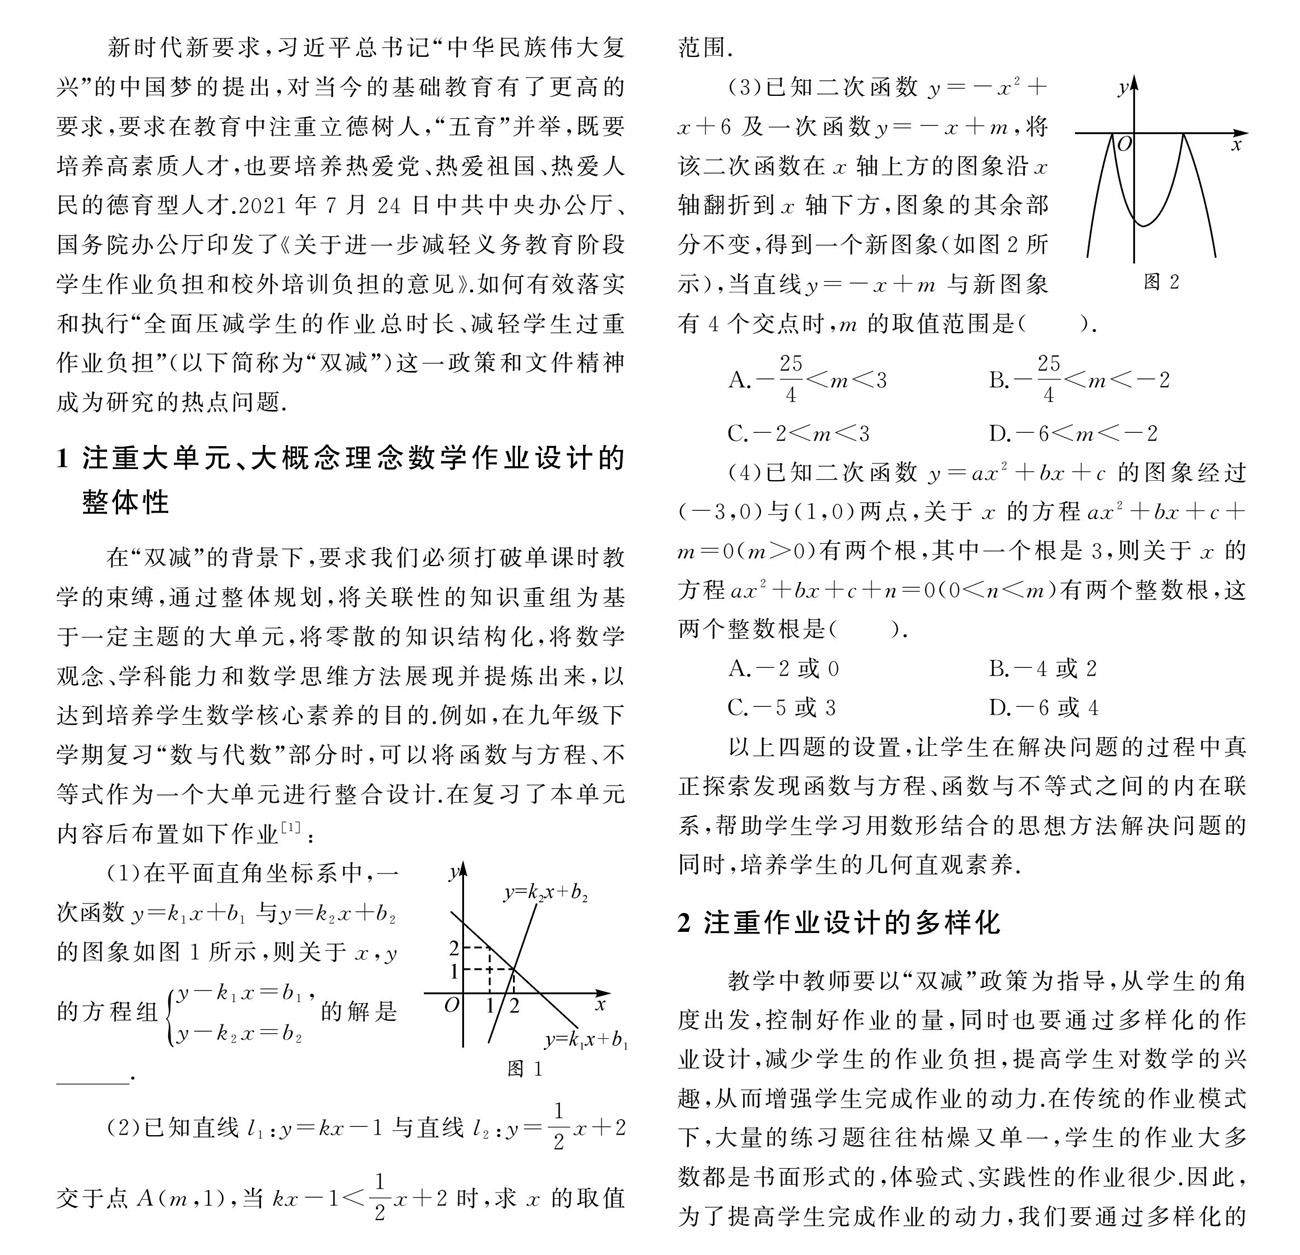 新时代新要求,习近平总书记“中华民族伟大复
兴”的中国梦的提出,对当今的基础教育有了更高的
要求,要求在教育中注重立德树人,“五育”并举,既要
培养高素质人才,也要培养热爱党、热爱祖国、热爱人
民的德育型人才.2021年7月24日中共中央办公厅、
国务院办公厅印发了《关于进一步减轻义务教育阶段
学生作业负担和校外培训负担的意见》.如何有效落实
和执行“全面压减学生的作业总时长、减轻学生过重
作业负担”(以下简称为“双减”)这一政策和文件精神
成为研究的热点问题.
1 注重大单元、大概念理念数学作业设计的
整体性
在“双减”的背景下,要求我们必须打破单课时教
学的束缚,通过整体规划,将关联性的知识重组为基
于一定主题的大单元,将零散的知识结构化,将数学
观念、学科能力和数学思维方法展现并提炼出来,以
达到培养学生数学核心素养的目的.例如,在九年级下
学期复习“数与代数”部分时,可以将函数与方程、不
等式作为一个大单元进行整合设计.在复习了本单元
内容后布置如下作业[1]:
(1)在平面直角坐标系中,一
次函数 y=k₁x+b₁ 与y=k₂x+b₂
的图象如图1所示,则关于 x,y
的方程组{y-k₁x=b₁, y-k₂x=b₂ 的解是
______.
y
y=k₂x+b₂
2
1
O 1 2 x
y=k₁x+b₁
图1
(2)已知直线 l₁:y=kx-1与直线 l₂:y=1/2x+2
交于点 A(m,1),当 kx-1<1/2x+2时,求 x 的取值
范围.
(3)已知二次函数 y=-x²+
x+6及一次函数y=-x+m,将
该二次函数在 x 轴上方的图象沿x
轴翻折到x 轴下方,图象的其余部
分不变,得到一个新图象(如图2所
示),当直线y=-x+m 与新图象
有4个交点时,m 的取值范围是(  ).
y
O x
图2
A.-25/4<m<3 B.-25/4<m<-2
C.-2<m<3 D.-6<m<-2
(4)已知二次函数 y=ax²+bx+c 的图象经过
(-3,0)与(1,0)两点,关于 x 的方程ax²+bx+c+
m=0(m>0)有两个根,其中一个根是3,则关于 x 的
方程ax²+bx+c+n=0(0<n<m)有两个整数根,这
两个整数根是(  ).
A.-2或0 B.-4或2
C.-5或3 D.-6或4
以上四题的设置,让学生在解决问题的过程中真
正探索发现函数与方程、函数与不等式之间的内在联
系,帮助学生学习用数形结合的思想方法解决问题的
同时,培养学生的几何直观素养.
2 注重作业设计的多样化
教学中教师要以“双减”政策为指导,从学生的角
度出发,控制好作业的量,同时也要通过多样化的作
业设计,减少学生的作业负担,提高学生对数学的兴
趣,从而增强学生完成作业的动力.在传统的作业模式
下,大量的练习题往往枯燥又单一,学生的作业大多
数都是书面形式的,体验式、实践性的作业很少.因此,
为了提高学生完成作业的动力,我们要通过多样化的